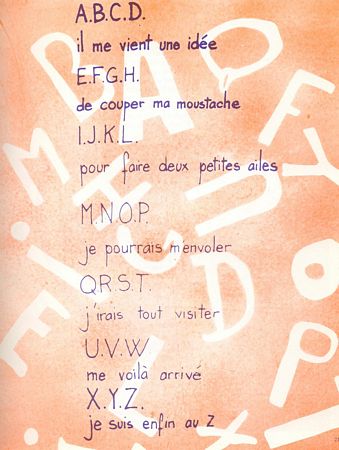 A.B.C.D.
il me vient une idée
E.F.G.H.
de couper ma moustache
I.J.K.L.
pour faire deux petites ailes
M.N.O.P.
je pourrais m'envoler
Q.R.S.T.
j'irais tout visiter
U.V.W
me voilà arrivé
X.Y.Z.
je suis enfin au Z